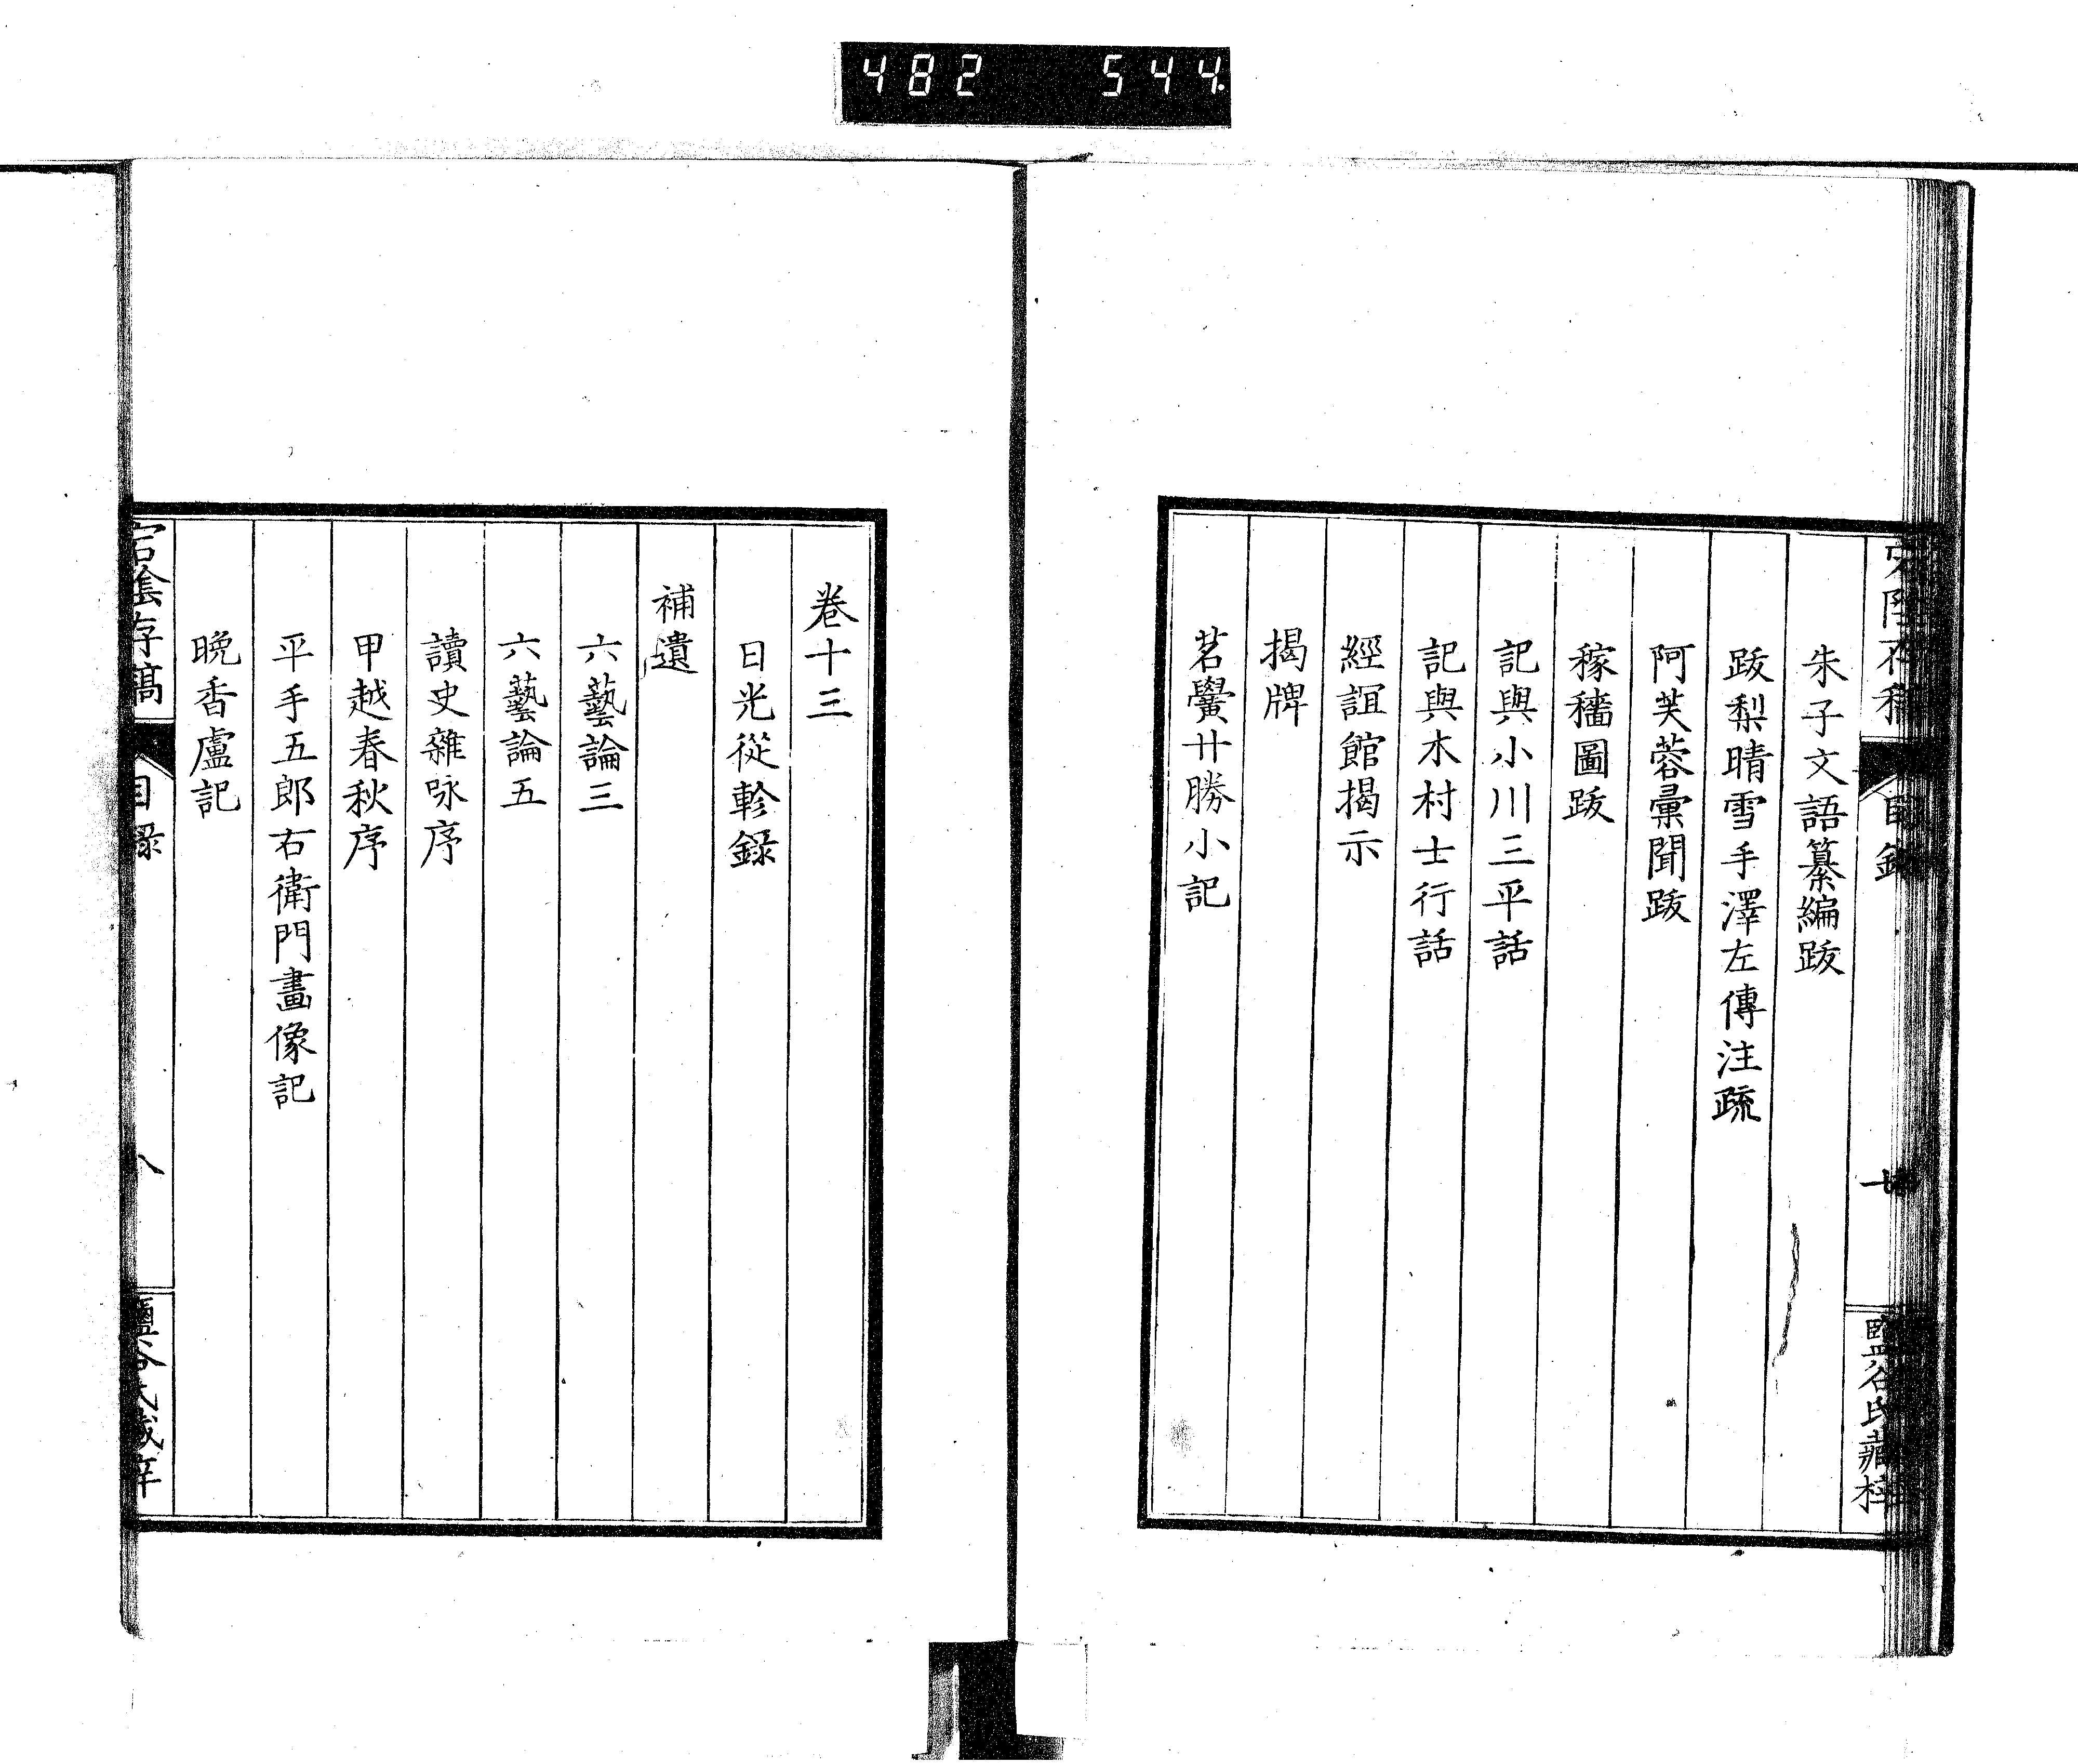 482 544.
朱子文語纂編跋
跋梨晴雪手澤左傳注疏
阿芙蓉彙聞跋
稼穡圖跋
記與小川三平話
記與木村士行話
經誼館揭示
揭牌
茗黌廿勝小記
鹽谷氏藏梓
卷十三
日光從軫錄
補遺
六藝論三
六藝論五
讀史雜咏序
甲越春秋序
平手五郎右衛門畫像記
晚香廬記
宕陰存稿
目錄
八